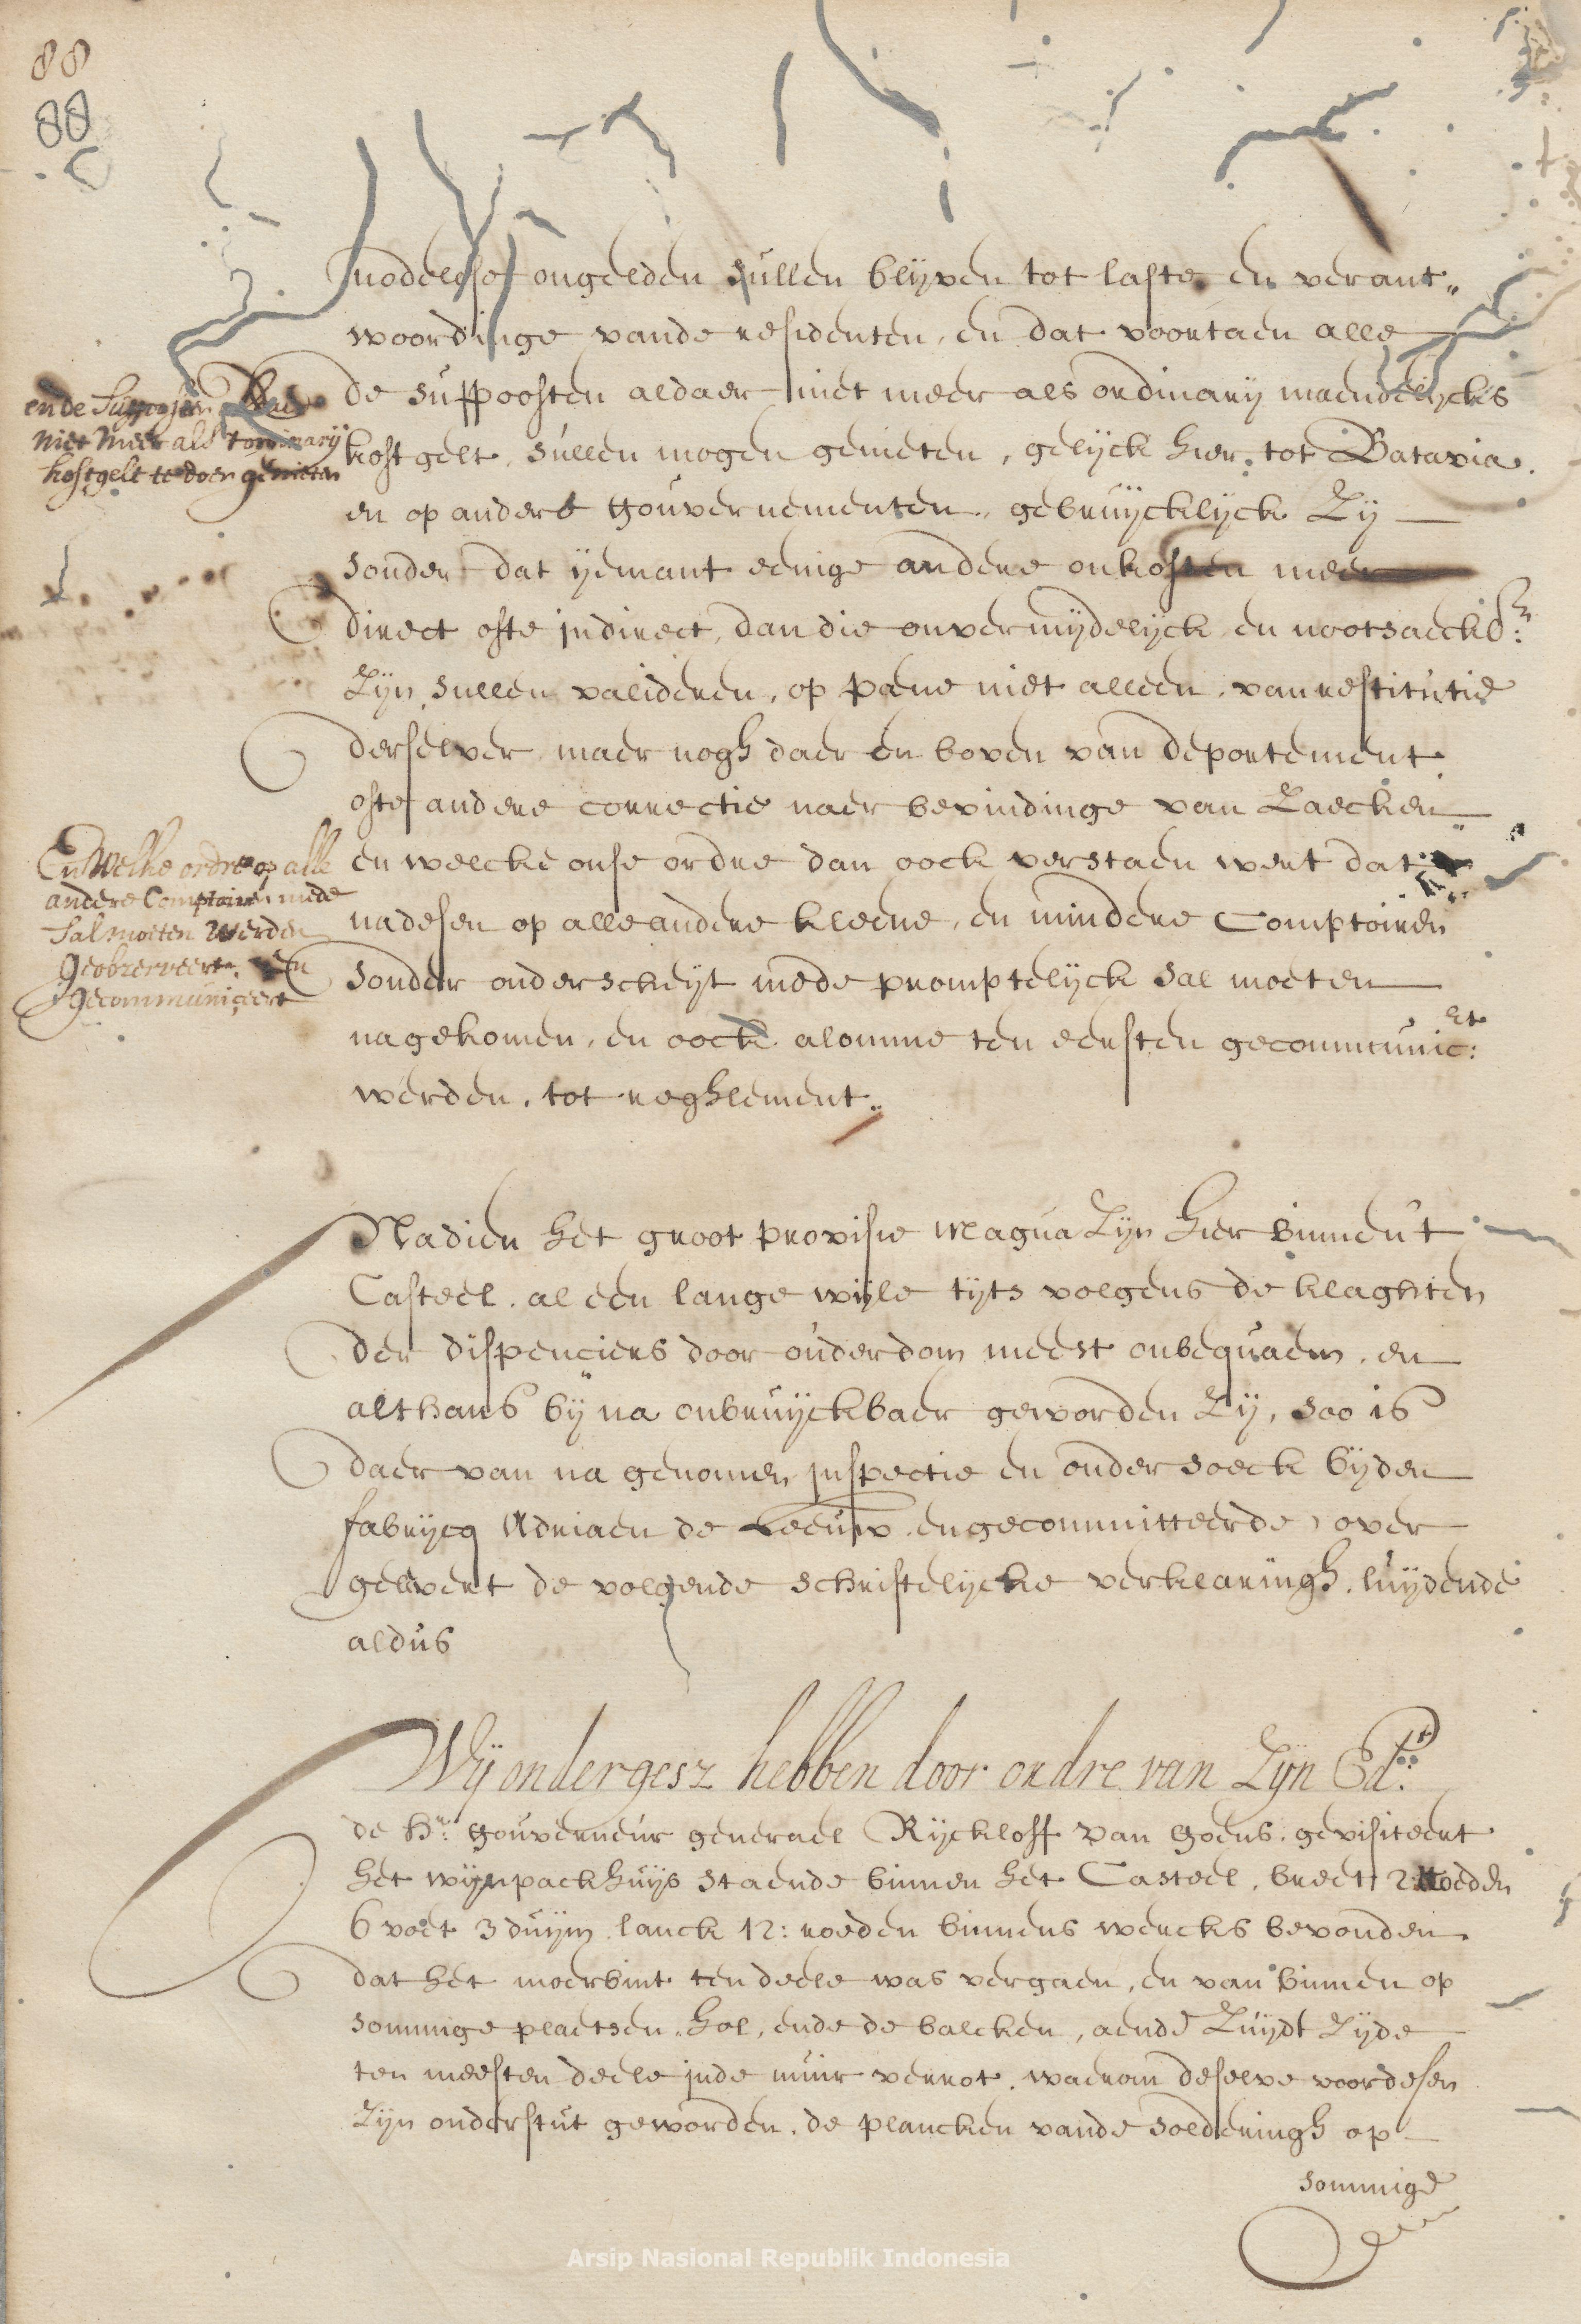 88
88
nodelose ongelden sullen blijven tot laste en verant„
woordinge vande residenten, en dat voortaen alle
de suppoosten aldaer niet meer als ordinarij maendelijcks
kostgelt, sullen mogen genieten, gelijck hier tot Batavia.
en op andere gouvernementen, gebruijcklijck Zij
sonder dat ijemant eenige andere onkosten meer
direct ofte jndirect, dan die onvermijdelijck en nootsaeckl:n
Zijn sullen valideren, op pæne niet alleen, van restitutie
derselver maer nogh daer en boven van deportement
ofte andere correctie naer bevindinge van Zaecken
en welcke onse ordre dan oock verstaen wert dat
nadesen op alle andere kleene, en mindere Comptoiren
sonder onderscheijt mede promptelijck sal moeten
nagekomen, en oock alomme ten eersten gecommunic:et
werden, tot reghlement„
ende Suppoosten Daer
niet meer als 't ordinarij
kostgelt te doen genieten
En Welke ordre op alle
andere Comptoiren mede
Sal moeten Werden
geobzerveert, En
gecommuniceert
Nadien het groot provisie magua Zijn hier binnen 't
Casteel, al een lange wijle tijts volgens de klaghten
der dispenciers door ouderdom meest onbequaem, en
althans bij na onbruijckbaer geworden Zij, soo is
daer van na genomen jnspectie en ondersoeck bijden
fabrijcq Adriaen de Leeuw en gecommitteerde, over
gelevert de volgende schriftelijcke verklaringh, luijdende
aldus
Wij ondergesz hebben door ordre van Zijn Ed:t
de Hr: gouverneur generael Rijckloff van Goens, gevisiteert
het wijnpackhuijs staende binnen het Casteel, breet 2 Roeden
6 voet 3 duijm lanck 12: roeden binnens wercks bevonden
dat het moerbint ten deele was vergaen, en van binnen op
sommige plaetsen, hol, ende de balcken, aende Zuijdt Zijde
ten meesten deele jnde muir verrot, waerom deselve voordesen
Zijn onderstut geworden, de plancken vande solderingh op
sommige
Arsip Nasional Republik Indonesia